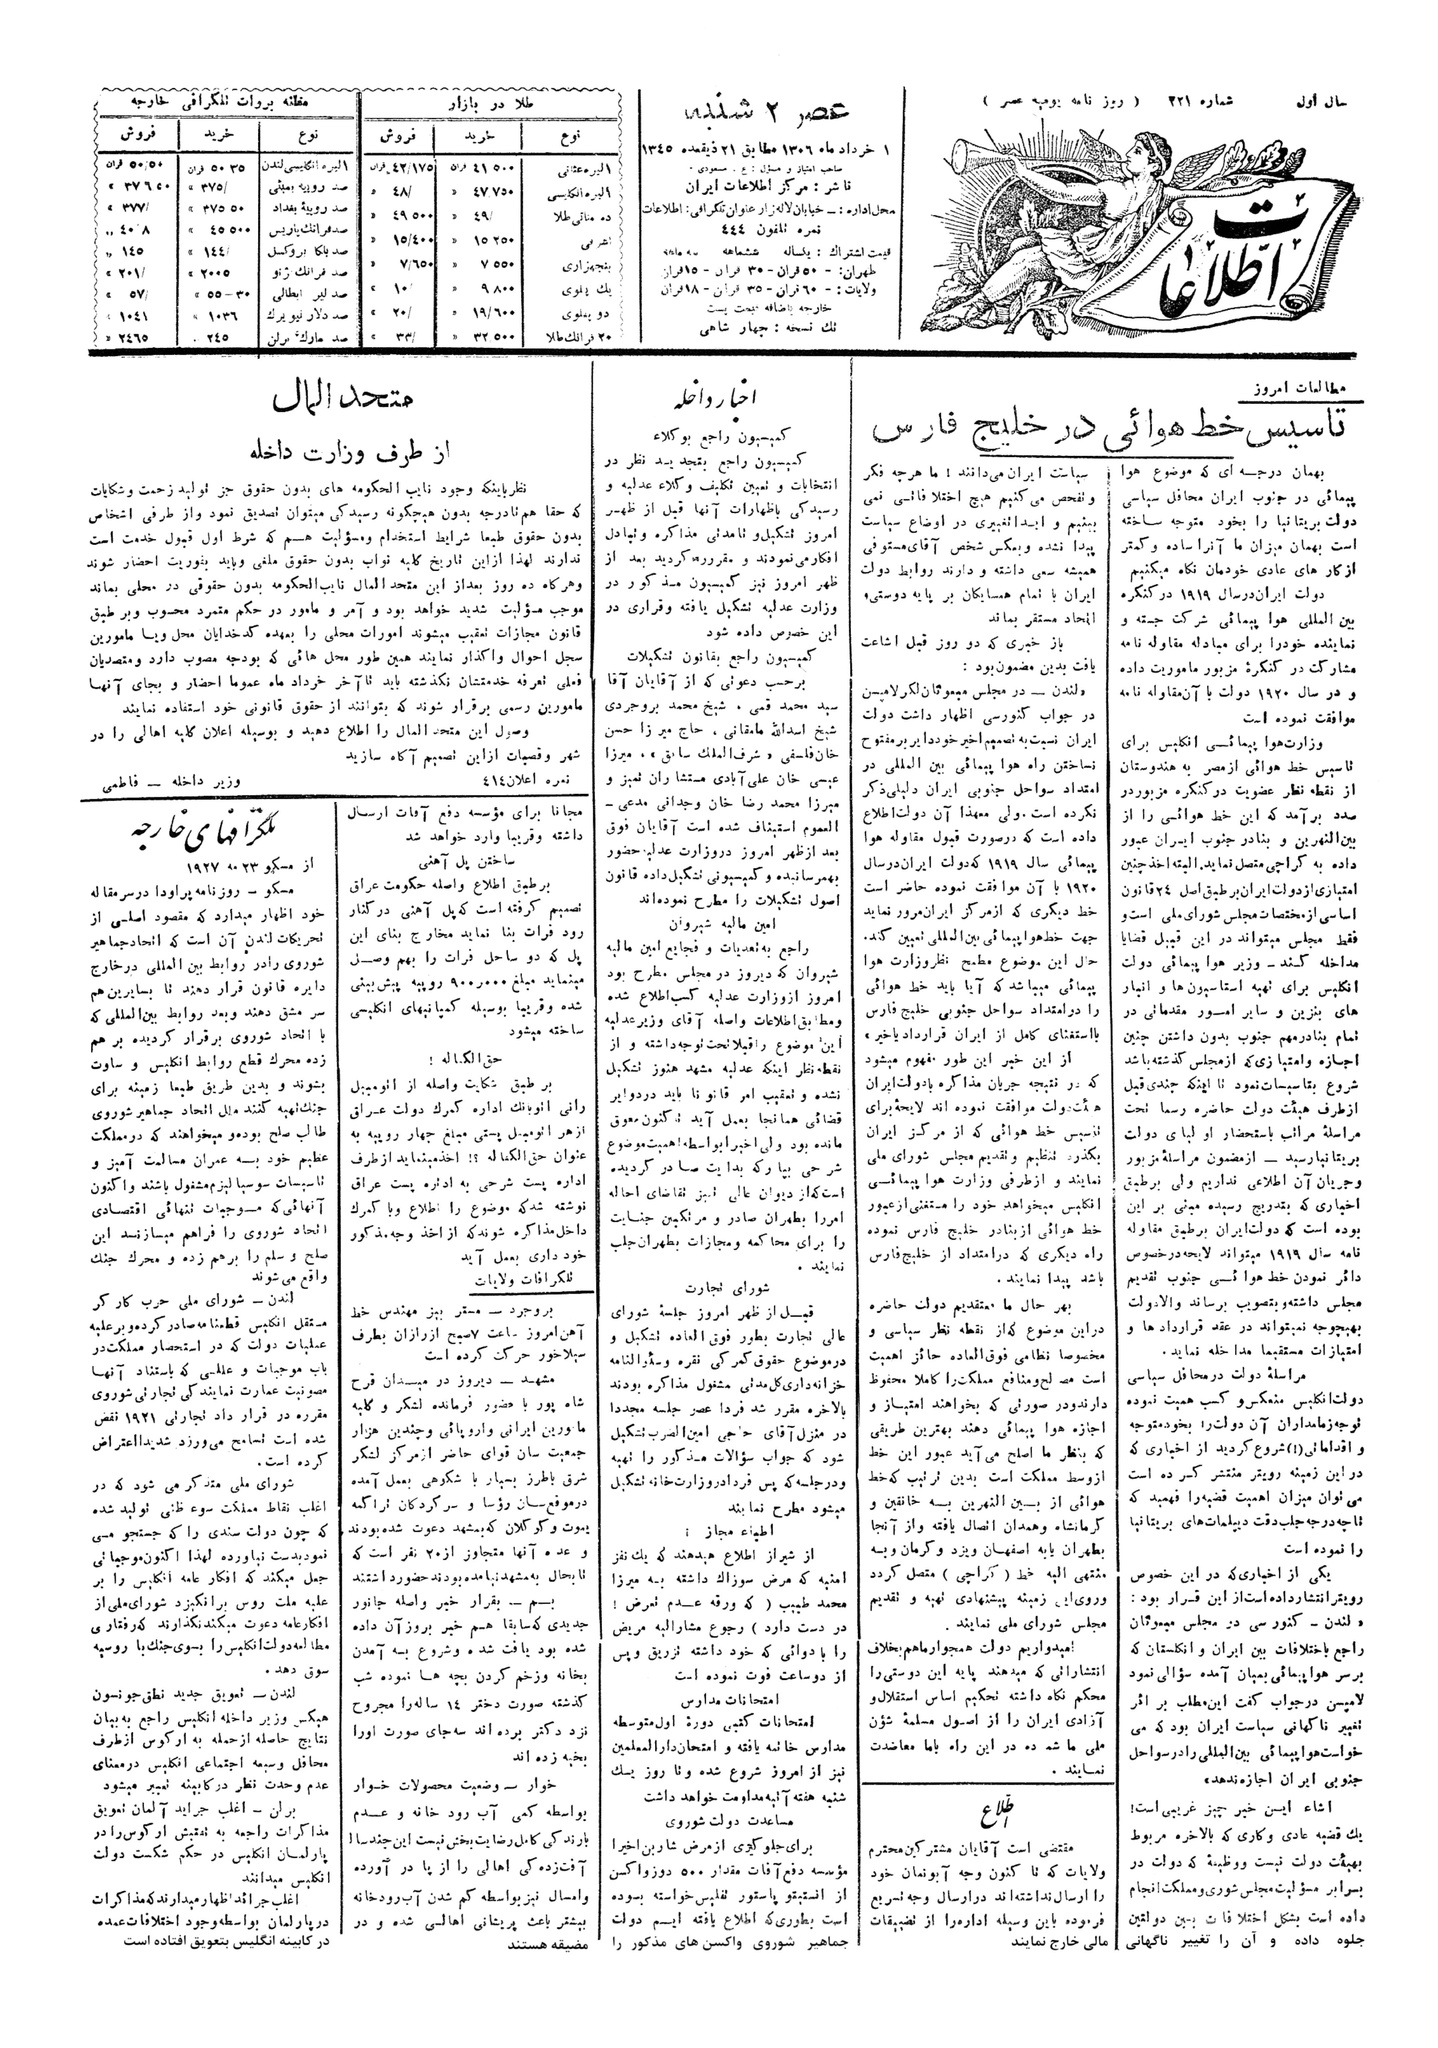 سال اول
شماره ۲۲۱
( روز نامه یومیه عصر )
اطلاعات
عصر ۲ شنبه
۱ خرداد ماه ۱۳۰۶ مطابق ۲۱ ذیقعده ۱۳۴۵
صاحب امتیاز و مسئول : ع . مسعودی -
ناشر : مرکز اطلاعات ایران
محل اداره : ـ خیابان لاله زار عنوان تلگرافی: اطلاعات
نمره تلفون ۴۴۴
قیمت اشتراك : یکساله ششماهه سه ماهه
طهران: - ۵۰ قران - ۳۰ قران - ۱۵ قران
ولایات : - ۶۰ قران - ۳۵ قران - ۱۸ قران
خارجه باضافه قیمت پست
تك نسخه : چهار شاهی
طلا در بازار
نوع خرید فروش
مظنه بروات تلگرافی خارجه
نوع خرید فروش
مطالعات امروز
تاسیس خط هوائی در خلیج فارس
بهمان درجه ای که موضوع هوا
پیمائی در جنوب ایران محافل سیاسی
دولت بریتانیا را بخود متوجه ساخته
است بهمان میزان ما آنرا ساده و کمتر
از کار های عادی خودمان نگاه میکنیم
دولت ایران در سال ۱۹۱۹ در کنگره
بین المللی هوا پیمائی شرکت جسته و
نماینده خود را برای مبادله مقاوله نامه
مشارکت در کنگرۀ مزبور ماموریت داده
و در سال ۱۹۲۰ دولت با آن مقاوله نامه
موافقت نموده است
وزارت هوا پیمائی انگلیس برای
تاسیس خط هوائی از مصر به هندوستان
از نقطه نظر عضویت در کنگره مزبور در
صدد برآمد که این خط هوائی را از
بین النهرین و بنادر جنوب ایران عبور
داده به کراچی متصل نماید. البته اخذ چنین
امتیازی از دولت ایران برطبق اصل ۲۴ قانون
اساسی از مختصات مجلس شورای ملی است و
فقط مجلس میتواند در این قبیل قضایا
مداخله کند ـ وزیر هوا پیمائی دولت
انگلیس برای تهیه استاسیون ها و انبار
های بنزین و سایر امور مقدماتی در
تمام بنادر مهم جنوب بدون داشتن چنین
اجازه و امتیازی که از مجلس گذشته باشد
شروع بتاسیسات نمود تا اینکه چندی قبل
از طرف هیئت دولت حاضره رسما تحت
مراسلۀ مراتب باستحضار اولیای دولت
بریتانیا رسید ـ از مضمون مراسلۀ مزبور
و جریان آن اطلاعی نداریم ولی برطبق
اخباری که بتدریج رسیده مبنی بر این
بوده است که دولت ایران برطبق مقاوله
نامه سال ۱۹۱۹ میتواند لایحه در خصوص
دائر نمودن خط هوائی جنوب تقدیم
مجلس داشته و بتصویب برساند والا دولت
بهیچوجه نمیتواند در عقد قرارداد ها و
امتیازات مستقیما مداخله نماید.
مراسلۀ دولت در محافل سیاسی
دولت انگلیس منعکس و کسب اهمیت نموده
توجه زمامداران آن دولت را بخود متوجه
و اقداماتی (!) شروع کردید از اخباری که
در این زمینه رویتر منتشر کرده است
می توان میزان اهمیت قضیه را فهمید که
تا چه درجه جلب دقت دیپلمات های بریتانیا
را نموده است
یکی از اخباری که در این خصوص
رویتر انتشار داده است از این قرار بود :
« لندن - کنورسی در مجلس مبعوثان
راجع باختلافات بین ایران و انگلستان که
بر سر هوا پیمائی بمیان آمده سؤالی نمود
لامپسن در جواب گفت این مطلب بر اثر
تغییر ناگهانی سیاست ایران بود که می
خواست هوا پیمائی بین المللی را در سواحل
جنوبی ایران اجازه ندهد»
اشاء این خبر چیز غریبی است!
یك قضیه عادی و کاری که بالاخره مربوط
بهیئت دولت نیست و وظیفۀ که دولت در
برابر مسؤلیت مجلس شوری و مملکت انجام
داده است بشکل اختلافات بین دولتین
جلوه داده و آن را تغییر ناگهانی
سیاست ایران می دانند ! ما هرچه فکر
و تفحص می کنیم هیچ اختلافاتی نمی
بینیم و ابدا تغییری در اوضاع سیاست
پیدا نشده و بعکس شخص آقای مستوفی
همیشه سعی داشته و دارند روابط دولت
ایران با تمام همسایگان بر پایه دوستی و
اتحاد مستقر بماند
باز خبری که دو روز قبل اشاعت
یافت بدین مضمون بود :
«لندن ـ در مجلس مبعوثان لکر لامپسن
در جواب کنورسی اظهار داشت دولت
ایران نسبت به تصمیم اخیر خود دایر بر مفتوح
نساختن راه هوا پیمائی بین المللی در
امتداد سواحل جنوبی ایران دلیلی ذکر
نکرده است. ولی معهذا آن دولت اطلاع
داده است که در صورت قبول مقاوله هوا
پیمائی سال ۱۹۱۹ که دولت ایران در سال
۱۹۲۰ با آن موافقت نموده حاضر است
خط دیگری که از مرکز ایران مرور نماید
جهت خط هوا پیمائی بین المللی تعیین کند.
حال این موضوع مطمح نظر وزارت هوا
پیمائی میباشد که آیا باید خط هوائی
را در امتداد سواحل جنوبی خلیج فارس
با استغنای کامل از ایران قرار داد یا خیر»
از این خبر این طور مفهوم میشود
که در نتیجه جریان مذاکره با دولت ایران
هئت دولت موافقت نموده اند لایحۀ برای
تاسیس خط هوائی که از مرکز ایران
بگذرد تنظیم و تقدیم مجلس شورای ملی
نمایند و از طرفی وزارت هوا پیمائی
انگلیس میخواهد خود را مستغنی از عبور
خط هوائی از بنادر خلیج فارس نموده
راه دیگری که در امتداد از خلیج فارس
باشد پیدا نمایند .
بهر حال ما معتقدیم دولت حاضره
در این موضوع که از نقطه نظر سیاسی و
مخصوصا نظامی فوق العاده حائز اهمیت
است مصالح و منافع مملکت را کاملا محفوظ
دارند و در صورتی که بخواهند امتیاز و
اجازه هوا پیمائی دهند بهترین طریقی
که بنظر ما اصلح می آید عبور این خط
از وسط مملکت است بدین ترتیب که خط
هوائی از بین النهرین به خانقین و
کرمانشاه و همدان اتصال یافته و از آنجا
بطهران یا به اصفهان و یزد و کرمان و به
منتهی الیه خط ( کراچی ) متصل گردد
و روی این زمینه پیشنهادی تهیه و تقدیم
مجلس شورای ملی نمایند .
امیدواریم دولت همجوار ما هم بخلاف
انتشاراتی که میدهند پایه این دوستی را
محکم نگاه داشته تحکیم اساس استقلال و
آزادی ایران را از اصول مسلمۀ شؤن
ملی ما شمرده در این راه با ما معاضدت
نمایند .
اطلاع
مقتضی است آقایان مشترکین محترم
ولایات که تا کنون وجه آبونمان خود
را ارسال نداشته اند در ارسال وجه تسریع
فرموده باین وسیله اداره را از تضییقات
مالی خارج نمایند
اخبار داخله
کمیسیون راجع بوکلاء
کمیسیون راجع بتجدید نظر در
انتخابات و تعیین تکلیف وکلاء عدلیه و
رسیدگی باظهارات آنها قبل از ظهر
امروز تشکیل و تا مدتی مذاکره و تبادل
افکار می نمودند و مقرر گردید بعد از
ظهر امروز نیز کمیسیون مذکور در
وزارت عدلیه تشکیل یافته و قراری در
این خصوص داده شود
کمیسیون راجع بقانون تشکیلات
برحسب دعوتی که از آقایان آقا
سید محمد قمی ، شیخ محمد بروجردی
شیخ اسدالله مامقانی ، حاج میرزا حسن
خان فلسفی « شرف الملك سابق » ، میرزا
عیسی خان علی آبادی مستشاران تمیز و
میرزا محمد رضا خان وجدانی مدعی ـ
العموم استیناف شده است آقایان فوق
بعد از ظهر امروز در وزارت عدلیه حضور
بهمرسانیده و کمیسیونی تشکیل داده قانون
اصول تشکیلات را مطرح نموده اند
امین مالیه شیروان
راجع به تعدیات و فجایع امین مالیه
شیروان که دیروز در مجلس مطرح بود
امروز از وزارت عدلیه کسب اطلاع شده
و مطابق اطلاعات واصله آقای وزیر عدلیه
این موضوع را قبلا تحت توجه داشته و از
نقطه نظر اینکه عدلیه مشهد هنوز تشکیل
نشده و تعقیب امر قانونا باید در دوایر
قضائی همانجا بعمل آید تا کنون معوق
مانده بود ولی اخیرا بواسطه اهمیت موضوع
شرحی بپارکه بدایت صادر گردیده
است که از دیوان عالی تمیز تقاضای احاله
امر را بطهران صادر و مرتکبین جنایت
را برای محاکمه و مجازات بطهران جلب
نمایند .
شورای تجارت
قبل از ظهر امروز جلسۀ شورای
عالی تجارت بطور فوق العاده تشکیل و
در موضوع حقوق گمرکی نقره و سئوالنامه
خزانه داری کل مدتی مشغول مذاکره بودند
بالاخره مقرر شد فردا عصر جلسه مجددا
در منزل آقای حاجی امین الضرب تشکیل
شود که جواب سؤالات مذکور را تهیه
و در جلسه که پس فردا در وزارتخانه تشکیل
میشود مطرح نمایند
اطباء مجاز !
از شیراز اطلاع میدهند که یك نفر
امنیه که مرض سوزاك داشته به میرزا
محمد طبیب ( که ورقه عدم تعرض !
در دست دارد ) رجوع مشارالیه مریض
را با دوائی که خود داشته تزریق و پس
از دو ساعت فوت نموده است
امتحانات مدارس
امتحانات کتبی دورۀ اول متوسطه
مدارس خاتمه یافته و امتحان دارالمعلمین
نیز از امروز شروع شده و تا روز یك
شنبه هفته آتیه مداومت خواهد داشت
مساعدت دولت شوروی
برای جلوگیری از مرض شاربن اخیرا
مؤسسه دفع آفات مقدار ۵۰۰ دوز واکسن
از انستیتو پاستور تفلیس خواسته بوده
است بطوری که اطلاع یافته ایم دولت
جماهیر شوروی واکسن های مذکور را
متحد المال
از طرف وزارت داخله
نظر باینکه وجود نایب الحکومه های بدون حقوق جز تولید زحمت و شکایات
که حقا هم تا درجه بدون هیچگونه رسیدگی میتوان تصدیق نمود و از طرفی اشخاص
بدون حقوق طبعا شرایط استخدام و مسؤلیت هم که شرط اول قبول خدمت است
ندارند لهذا از این تاریخ کلیه نواب بدون حقوق ملغی و باید بفوریت احضار شوند
و هرگاه ده روز بعد از این متحد المال نایب الحکومه بدون حقوقی در محلی بماند
موجب مسؤلیت شدید خواهد بود و آمر و مامور در حکم متمرد محسوب و بر طبق
قانون مجازات تعقیب میشوند امورات محلی را بعهده کدخدایان محل و یا مامورین
سجل احوال واگذار نمایند همین طور محل هائی که بودجه مصوب دارد و متصدیان
فعلی تعرفه خدمتشان نگذشته باید تا آخر خرداد ماه عموما احضار و بجای آنها
مامورین رسمی برقرار شوند که بتوانند از حقوق قانونی خود استفاده نمایند
وصول این متحد المال را اطلاع دهید و بوسیله اعلان کلیه اهالی را در
شهر و قصبات از این تصمیم آگاه سازید
نمره اعلان ۴۱۴
وزیر داخله ـ فاطمی
مجانا برای مؤسسه دفع آفات ارسال
داشته و قریبا وارد خواهد شد
ساختن پل آهنی
بر طبق اطلاع واصله حکومت عراق
تصمیم گرفته است که پل آهنی در کنار
رود فرات بنا نماید مخارج بنای این
پل که دو ساحل فرات را بهم وصل
مینماید مبلغ ۹۰۰۰۰۰ روپیه پیش بینی
شده و قریبا بوسیله کمپانیهای انگلیسی
ساخته میشود
حق الکفاله !
بر طبق شکایت واصله از اتومبیل
رانی اتوبانك اداره گمرك دولت عراق
از هر اتومبیل پستی مبلغ چهار روپیه به
عنوان حق الکفاله ؟! اخذ مینماید از طرف
اداره پست شرحی به اداره پست عراق
نوشته شد که موضوع را اطلاع و با گمرك
داخل مذاکره شوند که از اخذ وجه مذکور
خود داری بعمل آید
تلگرافات ولایات
بروجرد ـ مستر بیز مهندس خط
آهن امروز ساعت ۷ صبح از رازان بطرف
سیلاخور حرکت کرده است
مشهد ـ دیروز در میدان فرح
شاه پور با حضور فرمانده لشکر و کلیه
مامورین ایرانی و اروپائی و چندین هزار
جمعیت سان قوای حاضر از مرکز لشکر
شرق با طرز بسیار با شکوهی بعمل آمده
در موقع سان رؤسا و سرکردگان تراکمه
یموت و کوکلان که بمشهد دعوت شده بودند
و عده آنها متجاوز از ۲۰ نفر است که
تا بحال به مشهد نیامده بودند حضور داشتند
بم ـ بقرار خبر واصله جانور
جدیدی که سابقا هم خبر بروز آن داده
شده بود یافت شده و شروع به آمدن
بخانه و زخم کردن بچه ها نموده شب
گذشته صورت دختر ۱۴ ساله را مجروح
نزد دکتر برده اند سه جای صورت او را
بخیه زده اند
خوار ـ وضعیت محصولات خوار
بواسطه کمی آب رود خانه و عدم
بارندگی کامل رضایت بخش نیست این چند سال
آفت زدگی اهالی را از پا در آورده
و امسال نیز بواسطه کم شدن آب رودخانه
بیشتر باعث پریشانی اهالی شده و در
مضیقه هستند
تلگرافهای خارجه
از مسکو ۲۳ مه ۱۹۲۷
مسکو ـ روزنامه پراودا در سر مقاله
خود اظهار میدارد که مقصود اصلی از
تحریکات لندن آن است که اتحاد جماهیر
شوروی را در روابط بین المللی در خارج
دایره قانون قرار دهند تا بسایرین هم
سر مشق دهند و بعد روابط بین المللی که
با اتحاد شوروی برقرار گردیده بر هم
زده محرك قطع روابط انگلیس و ساوت
بشوند و بدین طریق طبعا زمینه برای
جنك تهیه کنند ملل اتحاد جماهیر شوروی
طالب صلح بوده و میخواهند که در مملکت
عظیم خود به عمران مسالمت آمیز و
تاسیسات سوسیالیزم مشغول باشند و اکنون
آنهائی که موجبات تنهائی اقتصادی
اتحاد شوروی را فراهم میسازند این
صلح و سلم را برهم زده و محرك جنك
واقع می شوند
لندن ـ شورای ملی حزب کارگر
مستقل انگلیس قطعنامه صادر کرده و بر علیه
عملیات دولت که در استحصار مملکت در
باب موجبات و عللی که باستناد آنها
مصونیت عمارت نمایندگی تجارتی شوروی
مقرره در قرار داد تجارتی ۱۹۲۱ نقض
شده است تسامح می ورزد شدیدا اعتراض
کرده است .
شورای ملی متذکر می شود که در
اغلب نقاط مملکت سوء ظنی تولید شده
که چون دولت سندی را که جستجو می
نمود بدست نیاورده لهذا اکنون موجباتی
جعل میکند که افکار عامه انگلیس را بر
علیه ملت روس برانگیزد شورای ملی از
افکار عامه دعوت میکند نگذارند که رفتاری
مطالعه دولت انگلیس را بسوی جنك با روسیه
سوق دهد .
لندن ـ تعویق جدید نطق جونسون
هیکس وزیر داخله انگلیس راجع به بیان
نتایج حاصله از حمله به ارکوس از طرف
محافل وسیعه اجتماعی انگلیس در معنای
عدم وحدت نظر در کابینه تعبیر میشود
برلن - اغلب جراید آلمان تعویق
مذاکرات راجعه به تفتیش ارکوس را در
پارلمان انگلیس در حکم شکست دولت
انگلیس میدانند
اغلب جرائد اظهار میدارند که مذاکرات
در پارلمان بواسطه وجود اختلافات عمده
در کابینه انگلیس بتعویق افتاده است